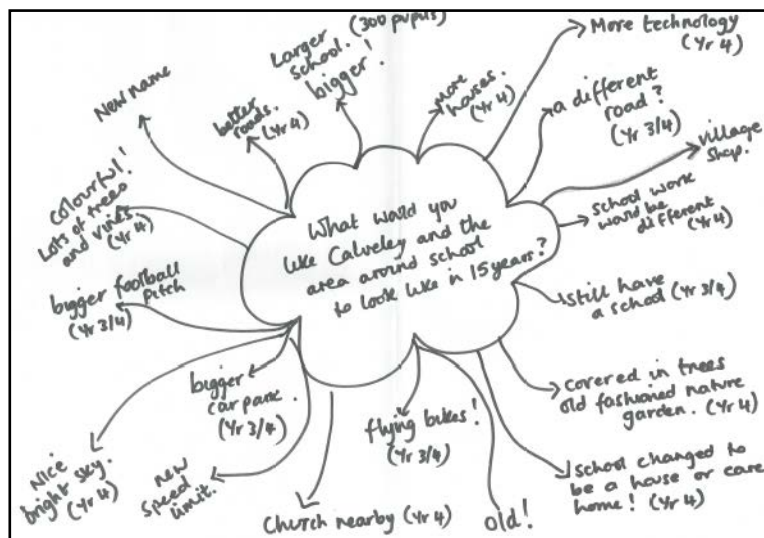 What would you
like Calveley and the
area around school
to look like in 15 years?
Larger
school. (300 pupils)
bigger!
more
houses.
(Yr 4)
More technology
(Yr 4)
a different
road?
(Yr 3/4)
village
shop.
school work
would be
different
(Yr 4)
still have
a school (Yr 3/4)
covered in trees
old fashioned nature
garden. (Yr 4)
school changed to
be a house or care
home! (Yr 4)
old!
flying bikes!
(Yr 3/4)
Church nearby (Yr 4)
new
speed
limit.
bigger
car park.
(Yr 3/4)
Nice
bright sky.
(Yr 4)
bigger football
pitch
(Yr 3/4)
Colourful!
Lots of trees
and vines.
(Yr 4)
New name
better
roads.
(Yr 4)